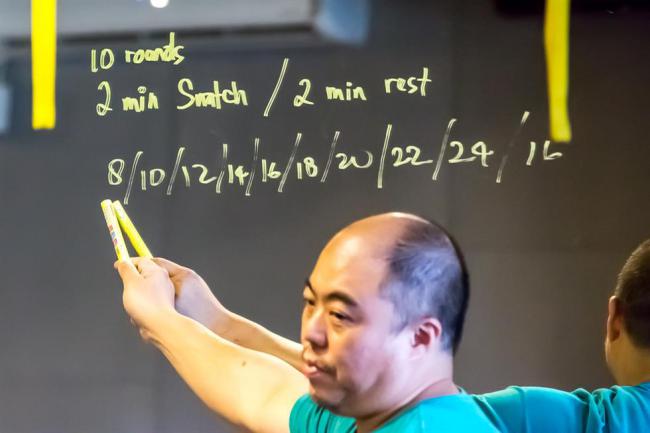 10 rounds
2 min Snatch / 2 min rest
8/10/12/14/16/18/20/22/24/16